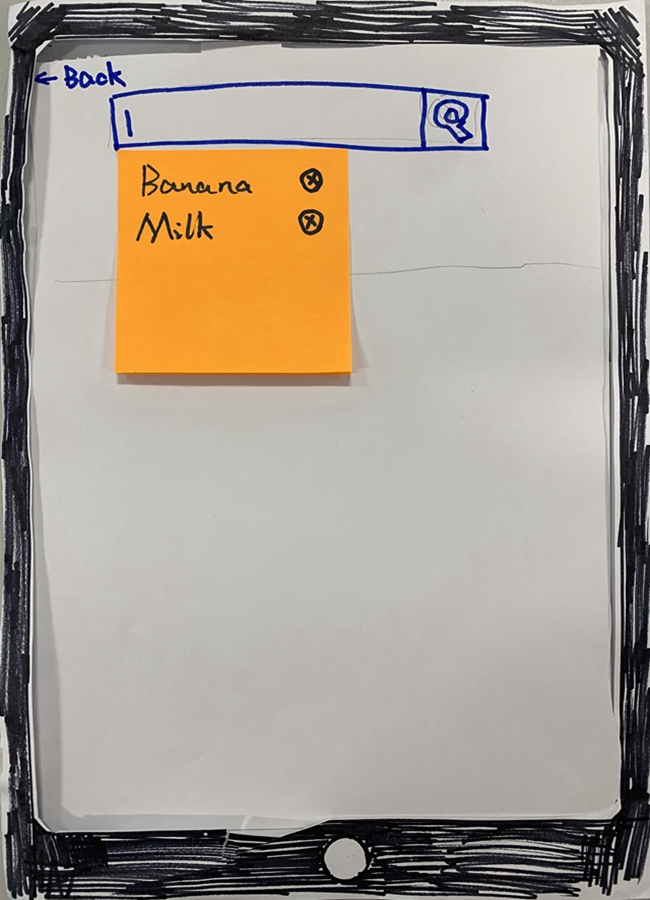 ← Back
Banana
Milk